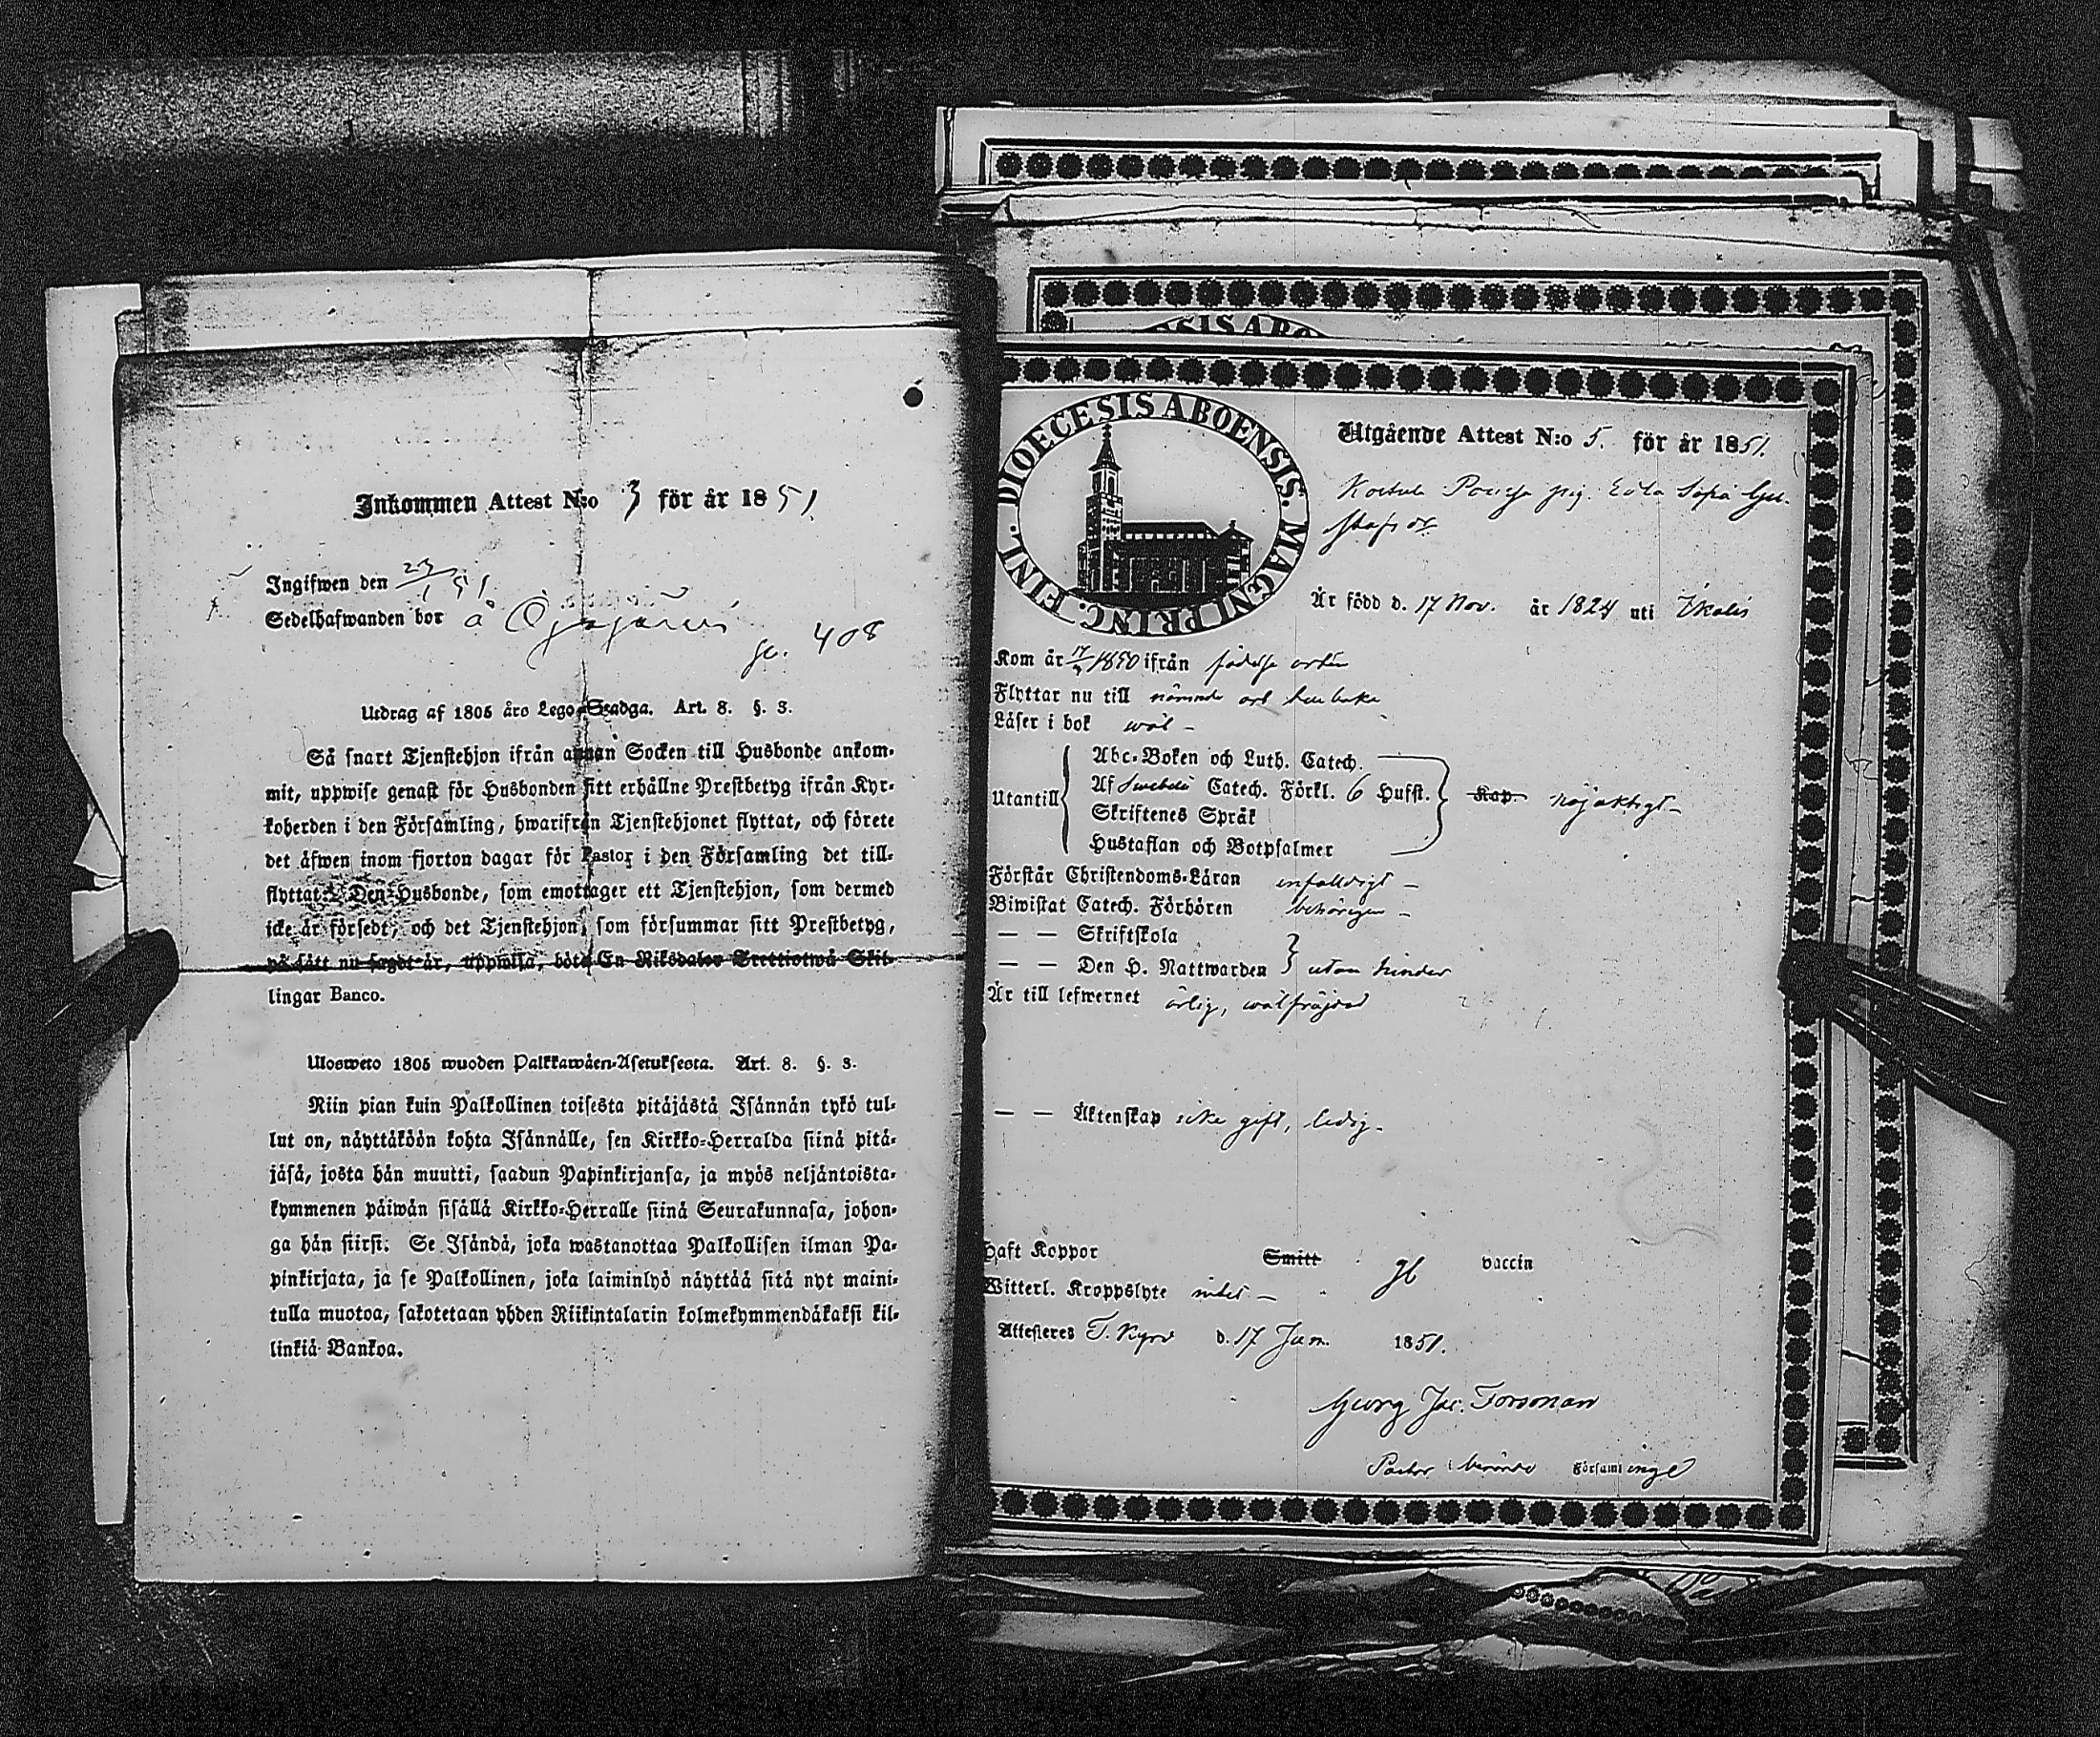 Inkommen Attest N:o 3 för år 1851.
Ingifwen den 23/1 51.
Sedelhafwanden bor å Öjajärvi
408
Utdrag af 1805 års Lego-Stadga. Art. 8. §. 3.
Så snart Tjenstehjon ifrån annan Socken till Husbonde ankom-
mit, uppwise genast för Husbonden sitt erhållne Prestbetyg ifrån Kyr-
koherden i den Församling, hwarifrån Tjenstehjonet flyttat, och förete
det äfwen inom fjorton dagar för Pastor i den Församling det till-
flyttat. Den Husbonde, som emottager ett Tjenstehjon, som dermed
icke är försedt, och det Tjenstehjon, som försummar sitt Prestbetyg,
på sätt nu sagdt är, uppwisa, böte En Riksdaler Trettiotwå Skil-
lingar Banco.
Ulosweto 1805 wuoden Palkkawäen-Asetuksesta. Art. 8. §. 3.
Niin pian kuin Palkollinen toisesta pitäjästä Isännän tykö tul-
lut on, näyttäköön kohta Isännälle, sen Kirkko-Herralda siinä pitä-
jäsä, josta hän muutti, saadun Papinkirjansa, ja myös neljäntoista-
kymmenen päiwän sisällä Kirkko-Herralle siinä Seurakunnasa, johon-
ga hän siirsi. Se Isändä, joka wastanottaa Palkollisen ilman Pa-
pinkirjata, ja se Palkollinen, joka laiminlyö näyttää sitä nyt maini-
tulla muotoa, sakotetaan yhden Riikintalarin kolmekymmendäkaksi kil-
linkiä Bankoa.
DIOECESIS ABOENSIS. MAGNI PRINC. FINL.
Utgående Attest N:o 5. för år 1851.
pig. Eva Sofia Gu-
stafsdr
Är född d. 17 Nov. år 1824 uti Ikalis
Kom år 1850 ifrån födelse orten
Flyttar nu till nämnde ort tillbaka
Läser i bok wäl –
Utantill
Abc-Boken och Luth. Catech.
Af Swebelii Catech. Förkl. 6 Hufst. Kap. nöjaktigt –
Skriftenes Språk
Hustaflan och Botpsalmer
Förstår Christendoms-Läran enfaldigt –
Biwistat Catech. Förhören behörigen –
— — Skriftskola
— — Den H. Nattwarden utan hinder
Är till lefwernet ärlig, wälfräjdad
— — Äktenskap icke gift, ledig.
Haft Koppor Smitt vaccin
Witterl. Kroppslyte intet –
Attesteras T. Kyro d. 17 Jan. 1851.
Georg Jac. Forsman
Pastor i berörde Församlingl